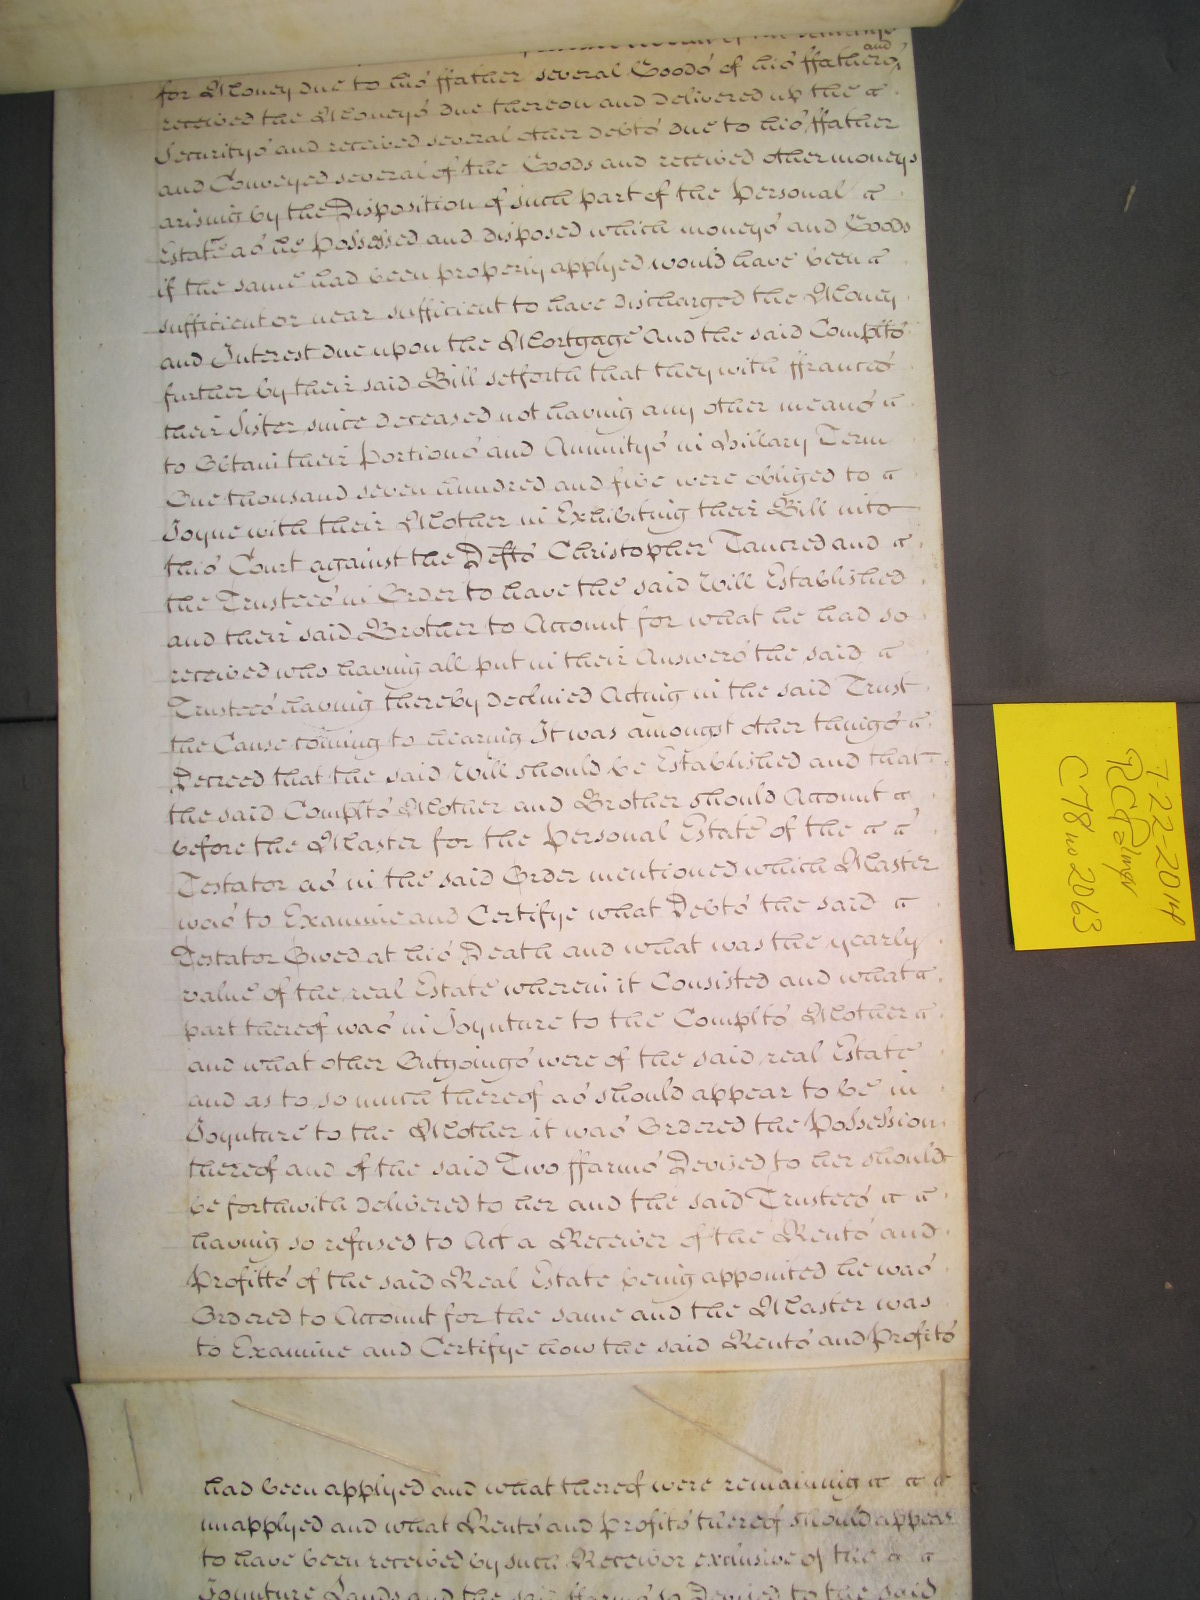 of the
for Money due to his ffather several Goods of his ffathers and
received the Moneys due thereon and delivered up the
Securitys and received several other debts due to his ffather
and Conveyed several of the Goods and received other moneys
arising by the Disposition of such part of the Personal
Estate as he Possessed and disposed which moneys and Goods
if the same had been properly applyed would have been
sufficient or near sufficient to have discharged the Money
and Interest due upon the Mortgage And the said Complts
further by their said Bill setforth that they with ffrances
their Sister since deceased not having any other means
to Obtain their Portions and Annuitys in Hillary Term
One thousand seven hundred and five were obliged to
Joyne with their Mother in Exhibiting their Bill into
this Court against the Defts Christopher Tancred and
the Trustees in Order to have the said Will Established
and their said Brother to Account for what he had so
received who having all put in their Answers the said
Trustees having thereby declined Acting in the said Trust
the Cause coming to hearing It was amongst other things
Decreed that the said Will should be Established and that
the said Complts Mother and Brother should Account
before the Master for the Personal Estate of the
Testator as in the said Order mentioned which Master
was to Examine and Certifye what Debts the said
Testator Owed at his Death and what was the yearly
value of the real Estate wherein it Consisted and what
part thereof was in Joynture to the Complts Mother
and what other Outgoings were of the said real Estate
and as to so much thereof as should appear to be in
Joynture to the Mother it was Ordered the Possession
thereof and of the said Two ffarms Devised to her should
be forthwith delivered to her and the said Trustees
having so refused to Act a Receiver of the Rents and
Profitts of the said Real Estate being appointed he was
Ordered to Account for the same and the Master was
to Examine and Certifye how the said Rents and Profits
had been applyed and what thereof were remaining
unapplyed and what Rents and Profits thereof should appear
to have been received by such Receivor exclusive of the
Joynture Lands and the said ffarms so Devised to the said
7-22-2014
C78 no 2063